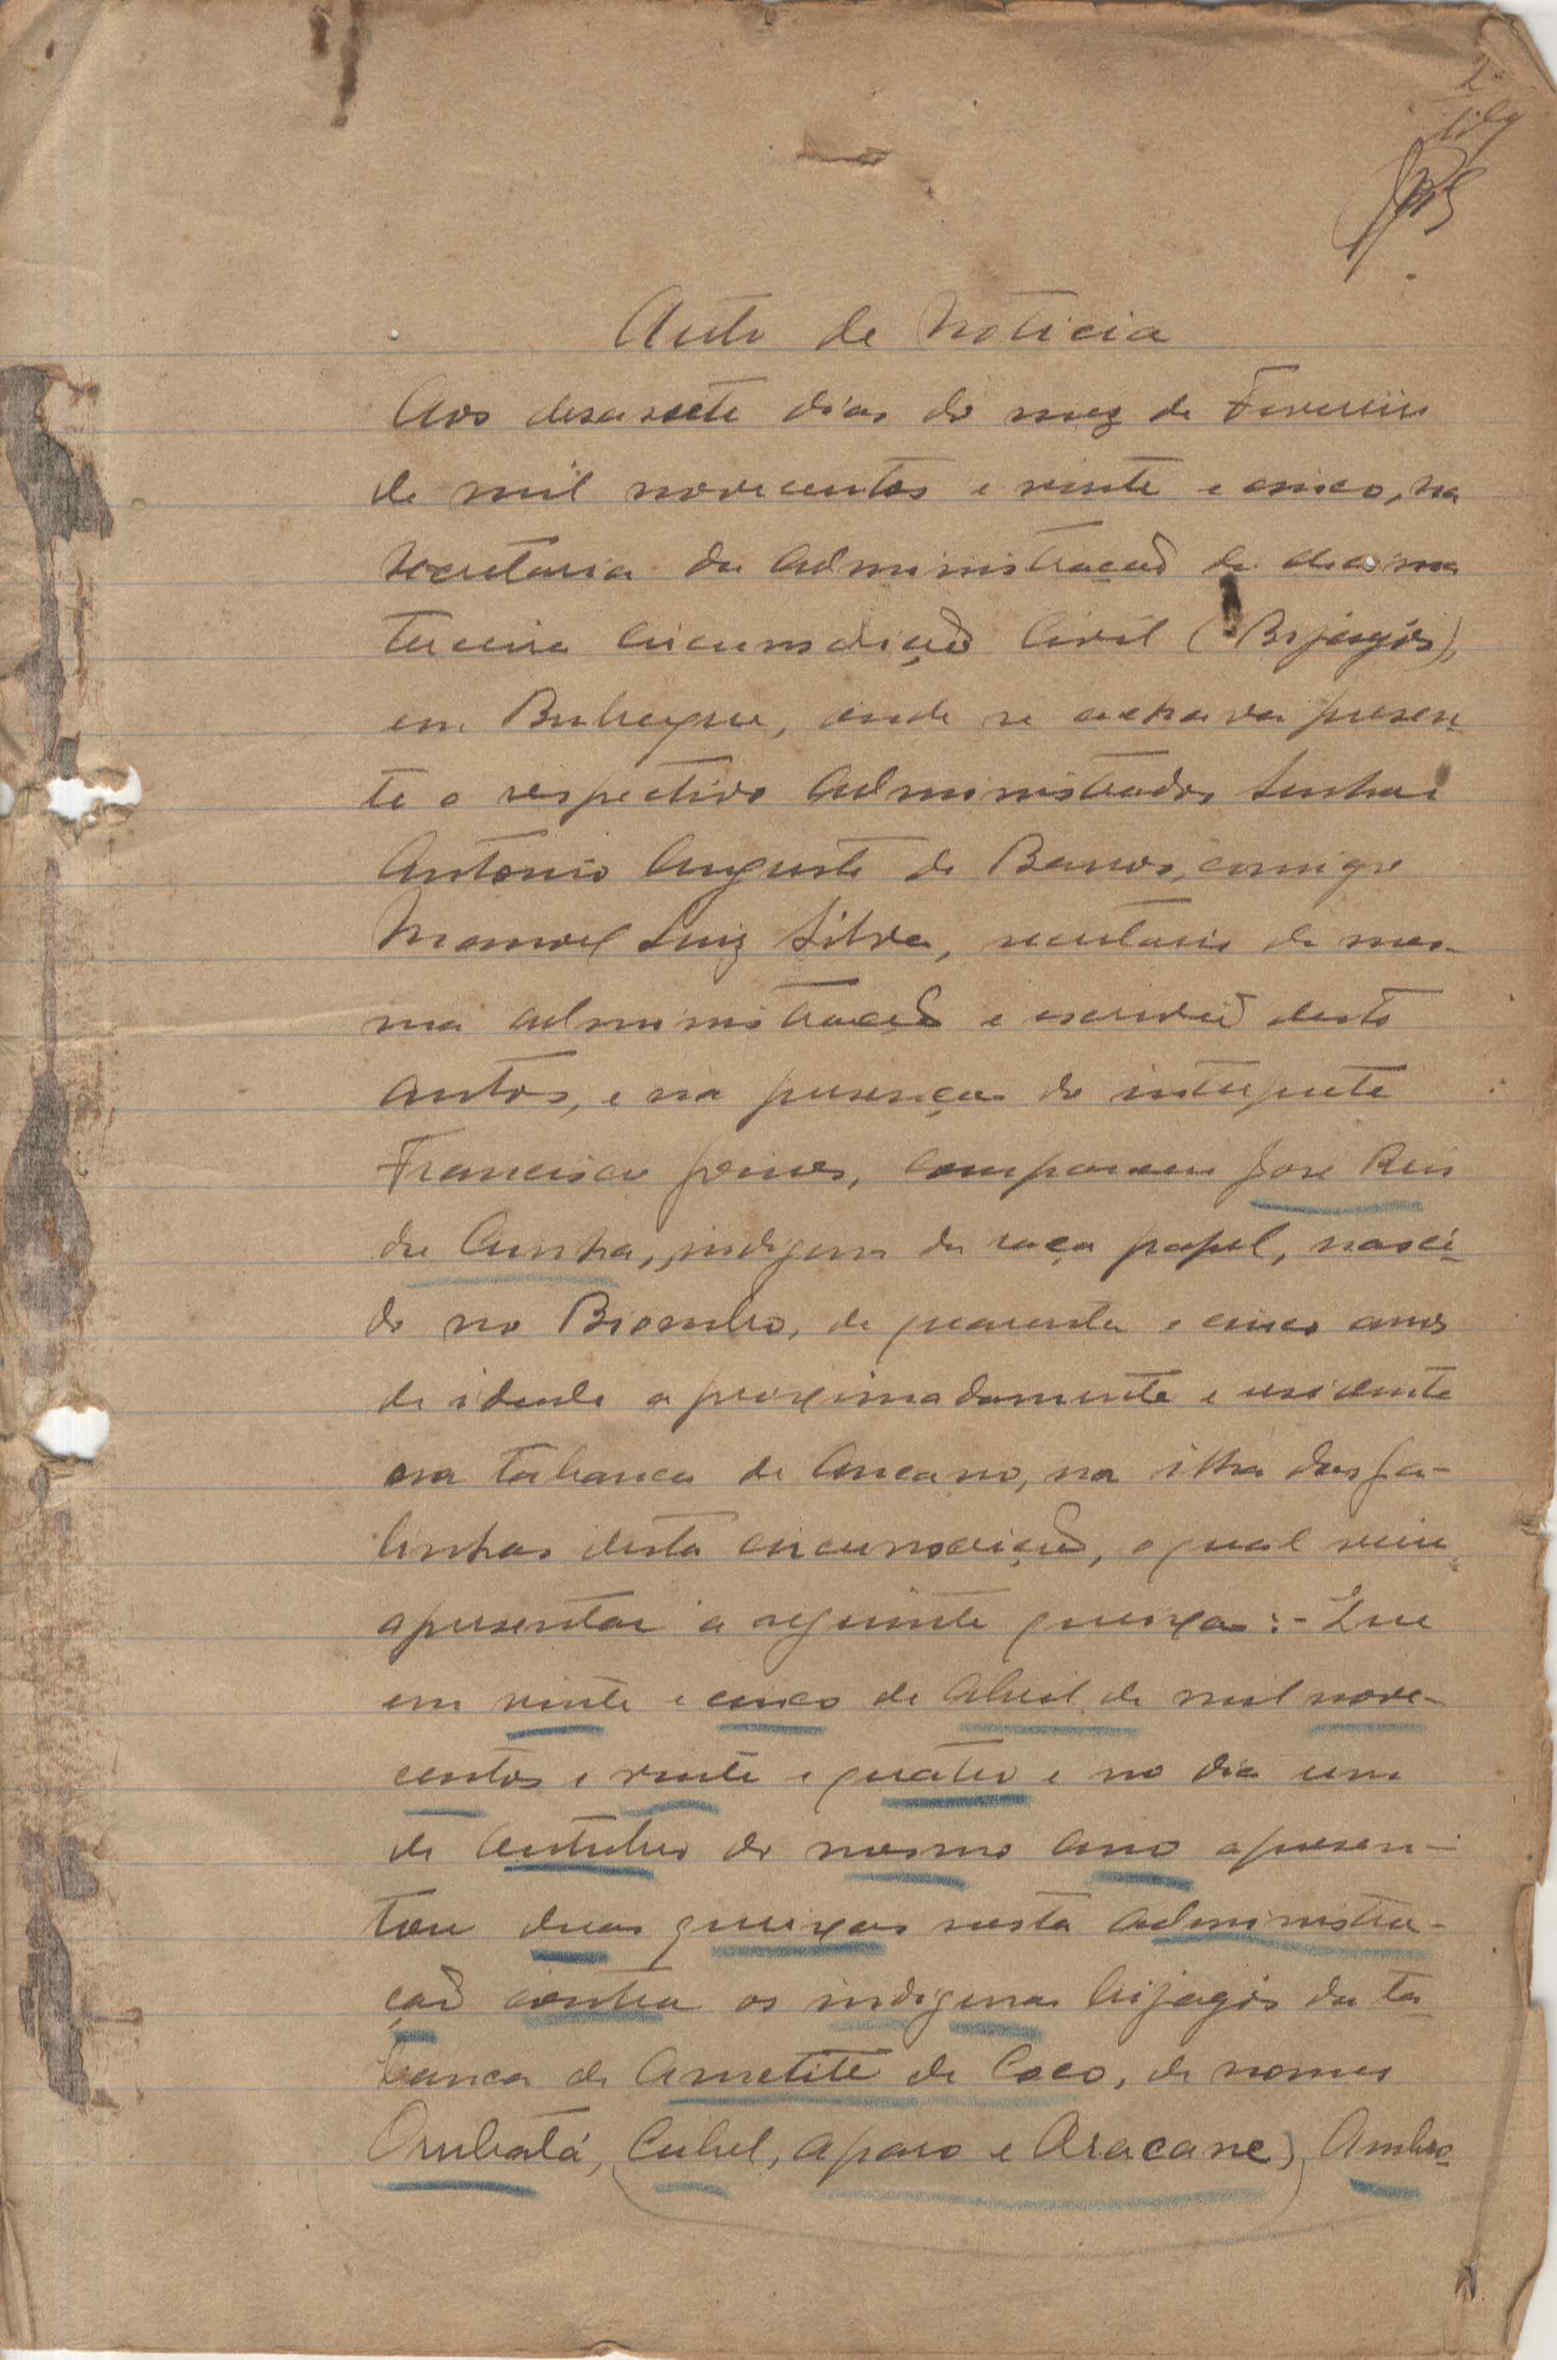 2
Auto de Noticia
Aos desassete dias do mez de Fevereiro
de mil novecentos e vinte e cinco, na
Secretaria da Administração da decima
terceira circunscrição Civil (Bijagós),
em Bubaque, onde se achava presen
te o respectivo Administrador Senhor
Antonio Augusto de Barros, comigo
Manoel Luiz Silva, secretario da mes-
ma administração e escrivão destes
autos, e na presença do interprete
Francisco comparceu José Reis
da Cunha, indigena da raça papel, nasci-
do no Biombo, de quarenta e cinco anos
de idade aproximadamente e residente
na tabanca de Ancano, na ilha das Ga-
linhas desta circunscrição, o qual veiu
apresentar a seguinte queixa:- Que
em vinte e cinco de Abril de mil nove-
centos e vinte e quatro e no dia um
de Outubro do mesmo ano apresen-
tou duas queixas nesta Administra-
ção contra os indigenas bijagós da ta
banca de Ametite de Coco, de nomes
Orubatá, (Cubel, Aparo e Aracane), Ambro